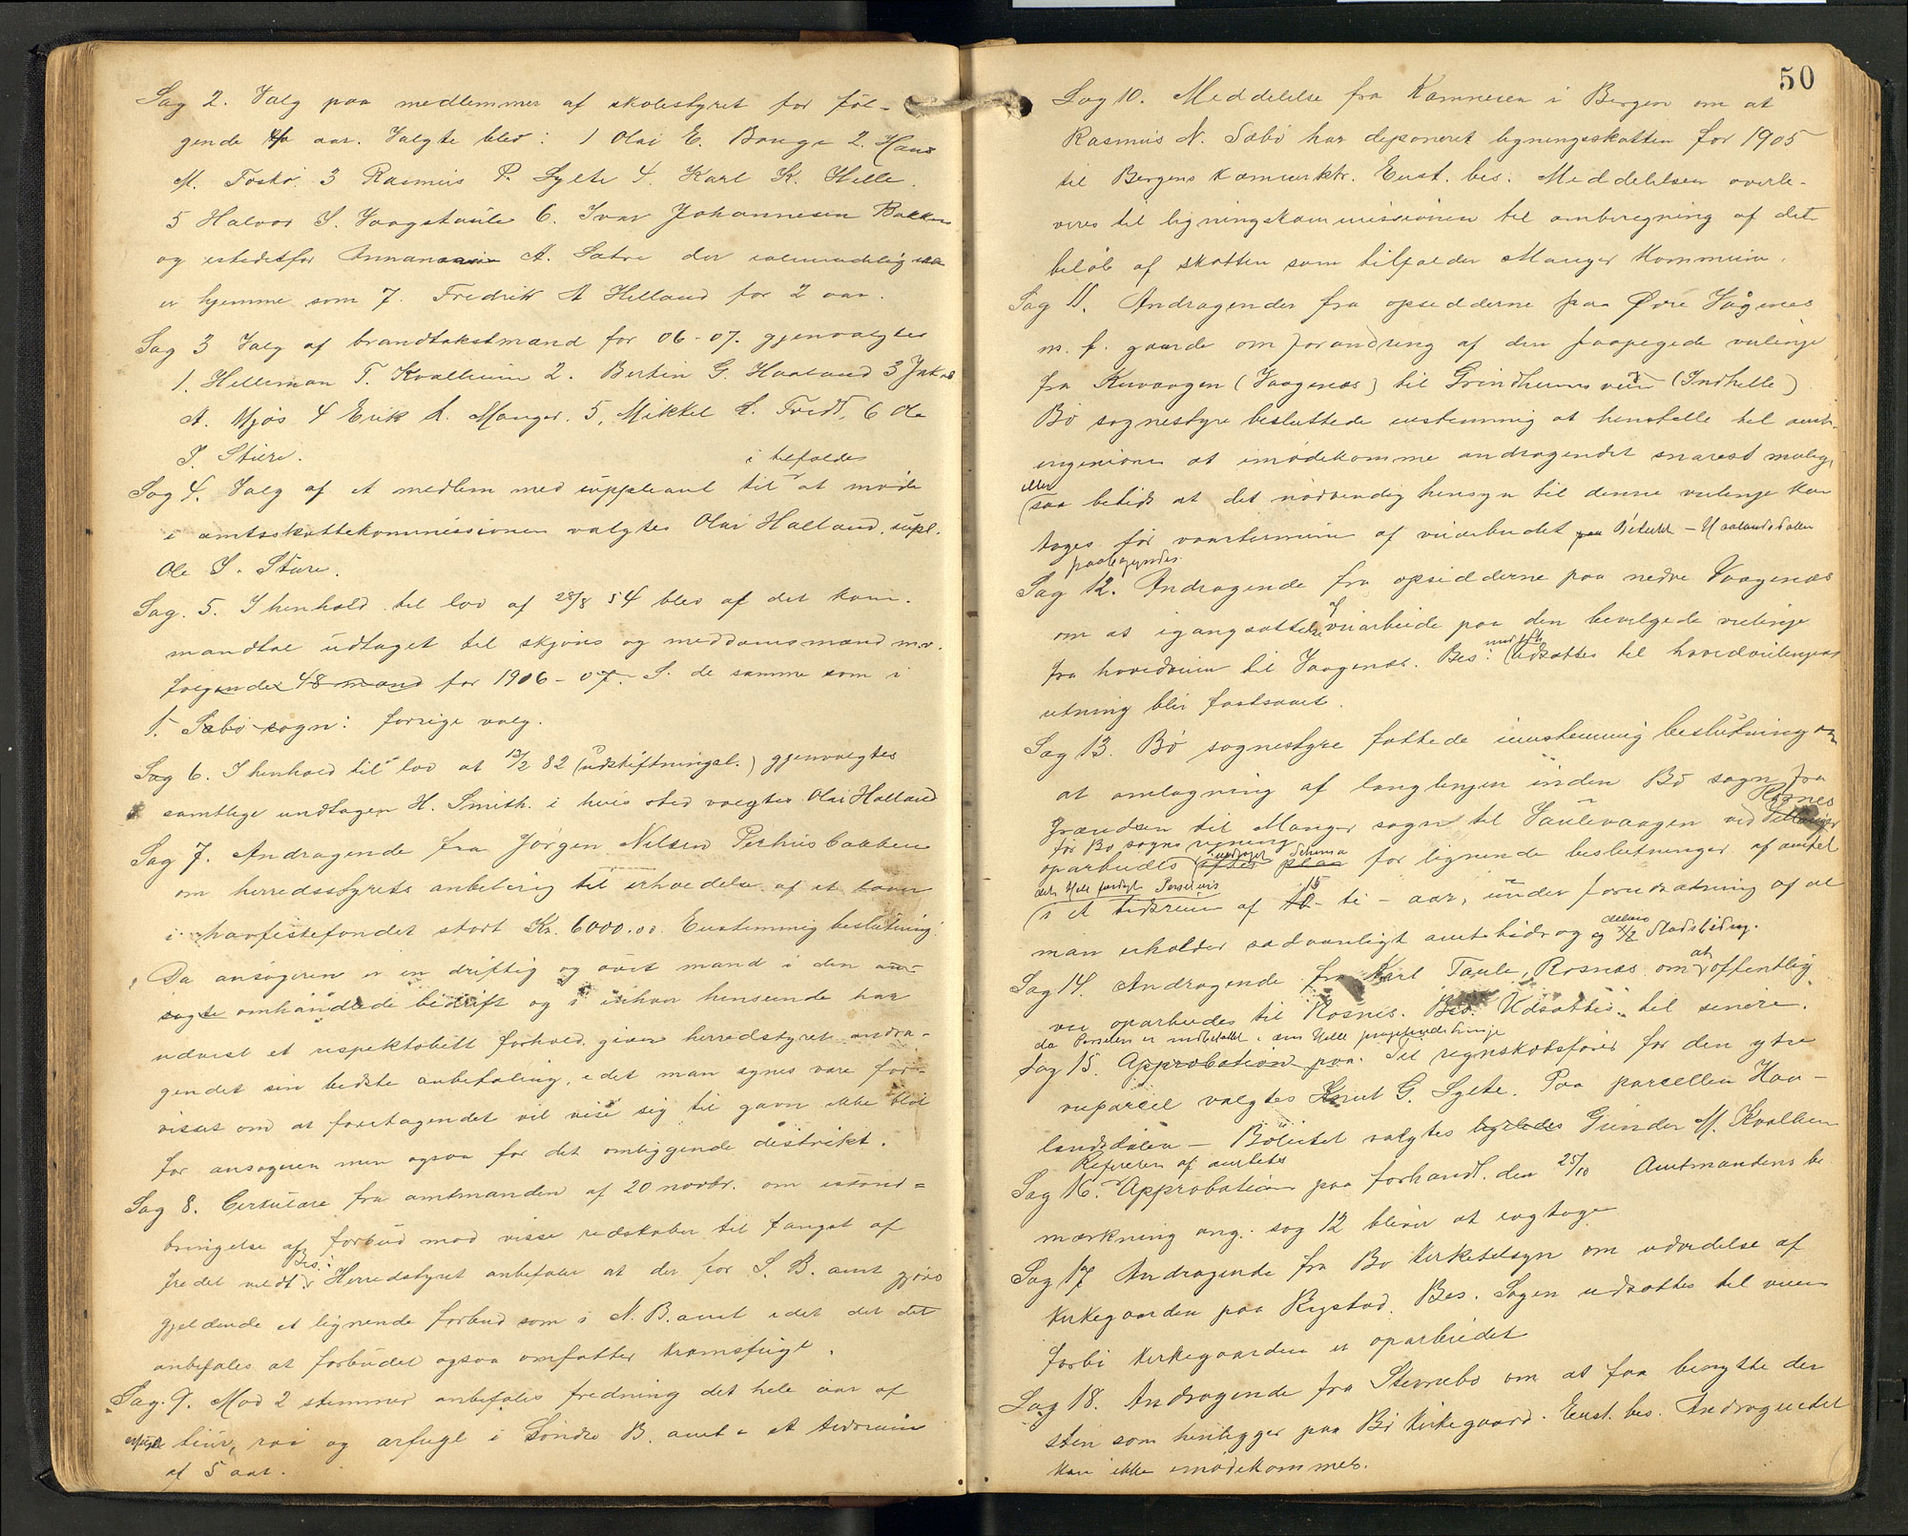 Sag 2. Valg paa medlemmer af skolestyret for føl-
gende aar. Valgte blev: 1 Olai E. Bauge 2. Hans
M. Toska 3 Rasmus P. Sylte 4. Karl K. Helle.
5 Halvor S. Vaagstaule 6. Ivar Johannesen Bakken
og istedetfor A. Sætre der
er hjemme som 7. Fredrik A Helland for 2 aar.
Sag 3 Valg af brandtakstmænd for 06-07. gjenvalgtes
1. Helleman T. Kvalheim 2. Berten G. Haaland 3 Jakob
A. Mjøs 4 Erik A. Manger. 5, Mikkel L. 6 Ole
S. Sture.
Sag 4. Valg af et medlem med suppleant til i tilfælde at møde
i amtsskattekommissionen valgtes Olai Halland, supl.
Ole S. Sture.
Sag. 5. I henhold til lov af 28/8 54 blev af det kom.
mandtal udtaget til skjøns og meddomsmænd m.v.
følgende 48 mand for 1906-07. S. de samme som i
1. Sæbø sogn: forrige valg.
Sag 6. I henhold til lov at 13/2 82 (udskiftningsl.) gjenvalgtes
samtlige undtagen H. Smith. i hvis sted valgtes Olai Halland
Sag 7. Andragende fra Jørgen Nilsen
om herredsstyrets anbefaling til erholdelse af et laan
i havfiskefondet stort Kr. 6000.00. Enstemmig beslutning:
Da ansøgeren er en driftig og øvet mand i den
omhandlede bedrift og i enhver henseende har
udvist et respektabelt forhold giver herredstyret andra-
gendet sin bedste anbefaling, idet man synes være for-
visset om at foretagendet vil vise sig til gavn ikke blot
for ansøgeren men ogsaa for det omliggende distrikt.
Sag 8. Cirkulære fra amtmanden af 20 novbr. om istand-
bringelse af forbud mod visse redskaber til fangst af
fredet vildt. Bes: Herredstyret anbefaler at der for S. B. amt gjøres
gjeldende et lignende forbud som i N. B. amt idet det
anbefales at forbudet ogsaa omfatter kramsfugl.
Sag. 9. Mod 2 stemmer anbefales fredning det hele aar af
tiur, røi og aarfugl i Søndre B. amt i et tidsrum
af 5 aar.
50
Sag 10. Meddelelse fra Kæmneren i Bergen om at
Rasmus N. Sæbø har deponeret ligningsskatten for 1905
til Bergens Kæmnerktr. Enst. bes. Meddelelsen overle-
veres til ligningskommissionen til omberegning af det
beløb af skatten som tilfalder Manger Kommune.
Sag 11. Andragender fra opsidderne paa Øvre Vågenes
m. fl. gaarde om forandring af den paapegede veilinje
fra Kuvaagen (Vaagenæs) til Grindheims vei (Indhelle)
Bø sognestyre besluttede enstemmig at henstille til amts-
ingeniøren at imødekomme andragendet snarest mulig
eller saa betids at det nødvendig hensyn til denne veilinje kan
tages før vaartermin af veiarbeidet paa - Haalandsdalen
paabegyndes.
Sag 12. Andragende fra opsidderne paa nedre Vaagenæs
om at igangsættelse af veiarbeide paa den bevilgede veilinje
fra hovedveien til Vaagenæs. Bes: udsættes til hovedveilinjens
retning blir fastsat.
Sag 13. Bø sognestyre fattede enstemmig beslutning om
at omlægning af langlinjen inden Bø sogn fra
Grændsen til Manger sogn til Saulevaagen ved Rosnes
for Bø sogns regning
oparbeides efter plan Schema for lignende beslutninger af amtet
i et tidsrum af 15 - ti - aar, under forudsætning af at
man erholder sædvanligt amtsbidrag og 1/2 Statsbidrag.
Sag 14. Andragende fra Karl Taule, Rosnæs om at offentlig
vei oparbeides til Rosnes. Bes. Udsættes til senere.
da Parsellen er indbefattet i den Hele
Sag 15. Approbation paa. Til regnskabsfører for den ytre
veiparcel valgtes Knut G. Sylte. Paa parsellen Haa-
landsdalen - valgtes Gunder M. Kvalheim
Referere af amtets
Sag 16. Approbation paa forhandl. den 25/10 Amtmandens be-
mærkning ang. sag 12 bliver at iagttage
Sag 17 Andragende fra Bø Kirketilsyn om udvidelse af
Kirkegaarden paa Rystad. Bes. Sagen udsættes til veien
forbi Kirkegaarden er oparbeidet
Sag 18. Andragende fra Stevnebø om at faa benytte den
sten som henligger paa Bø Kirkegaard. Enst. bes. Andragendet
kan ikke imødekommes.